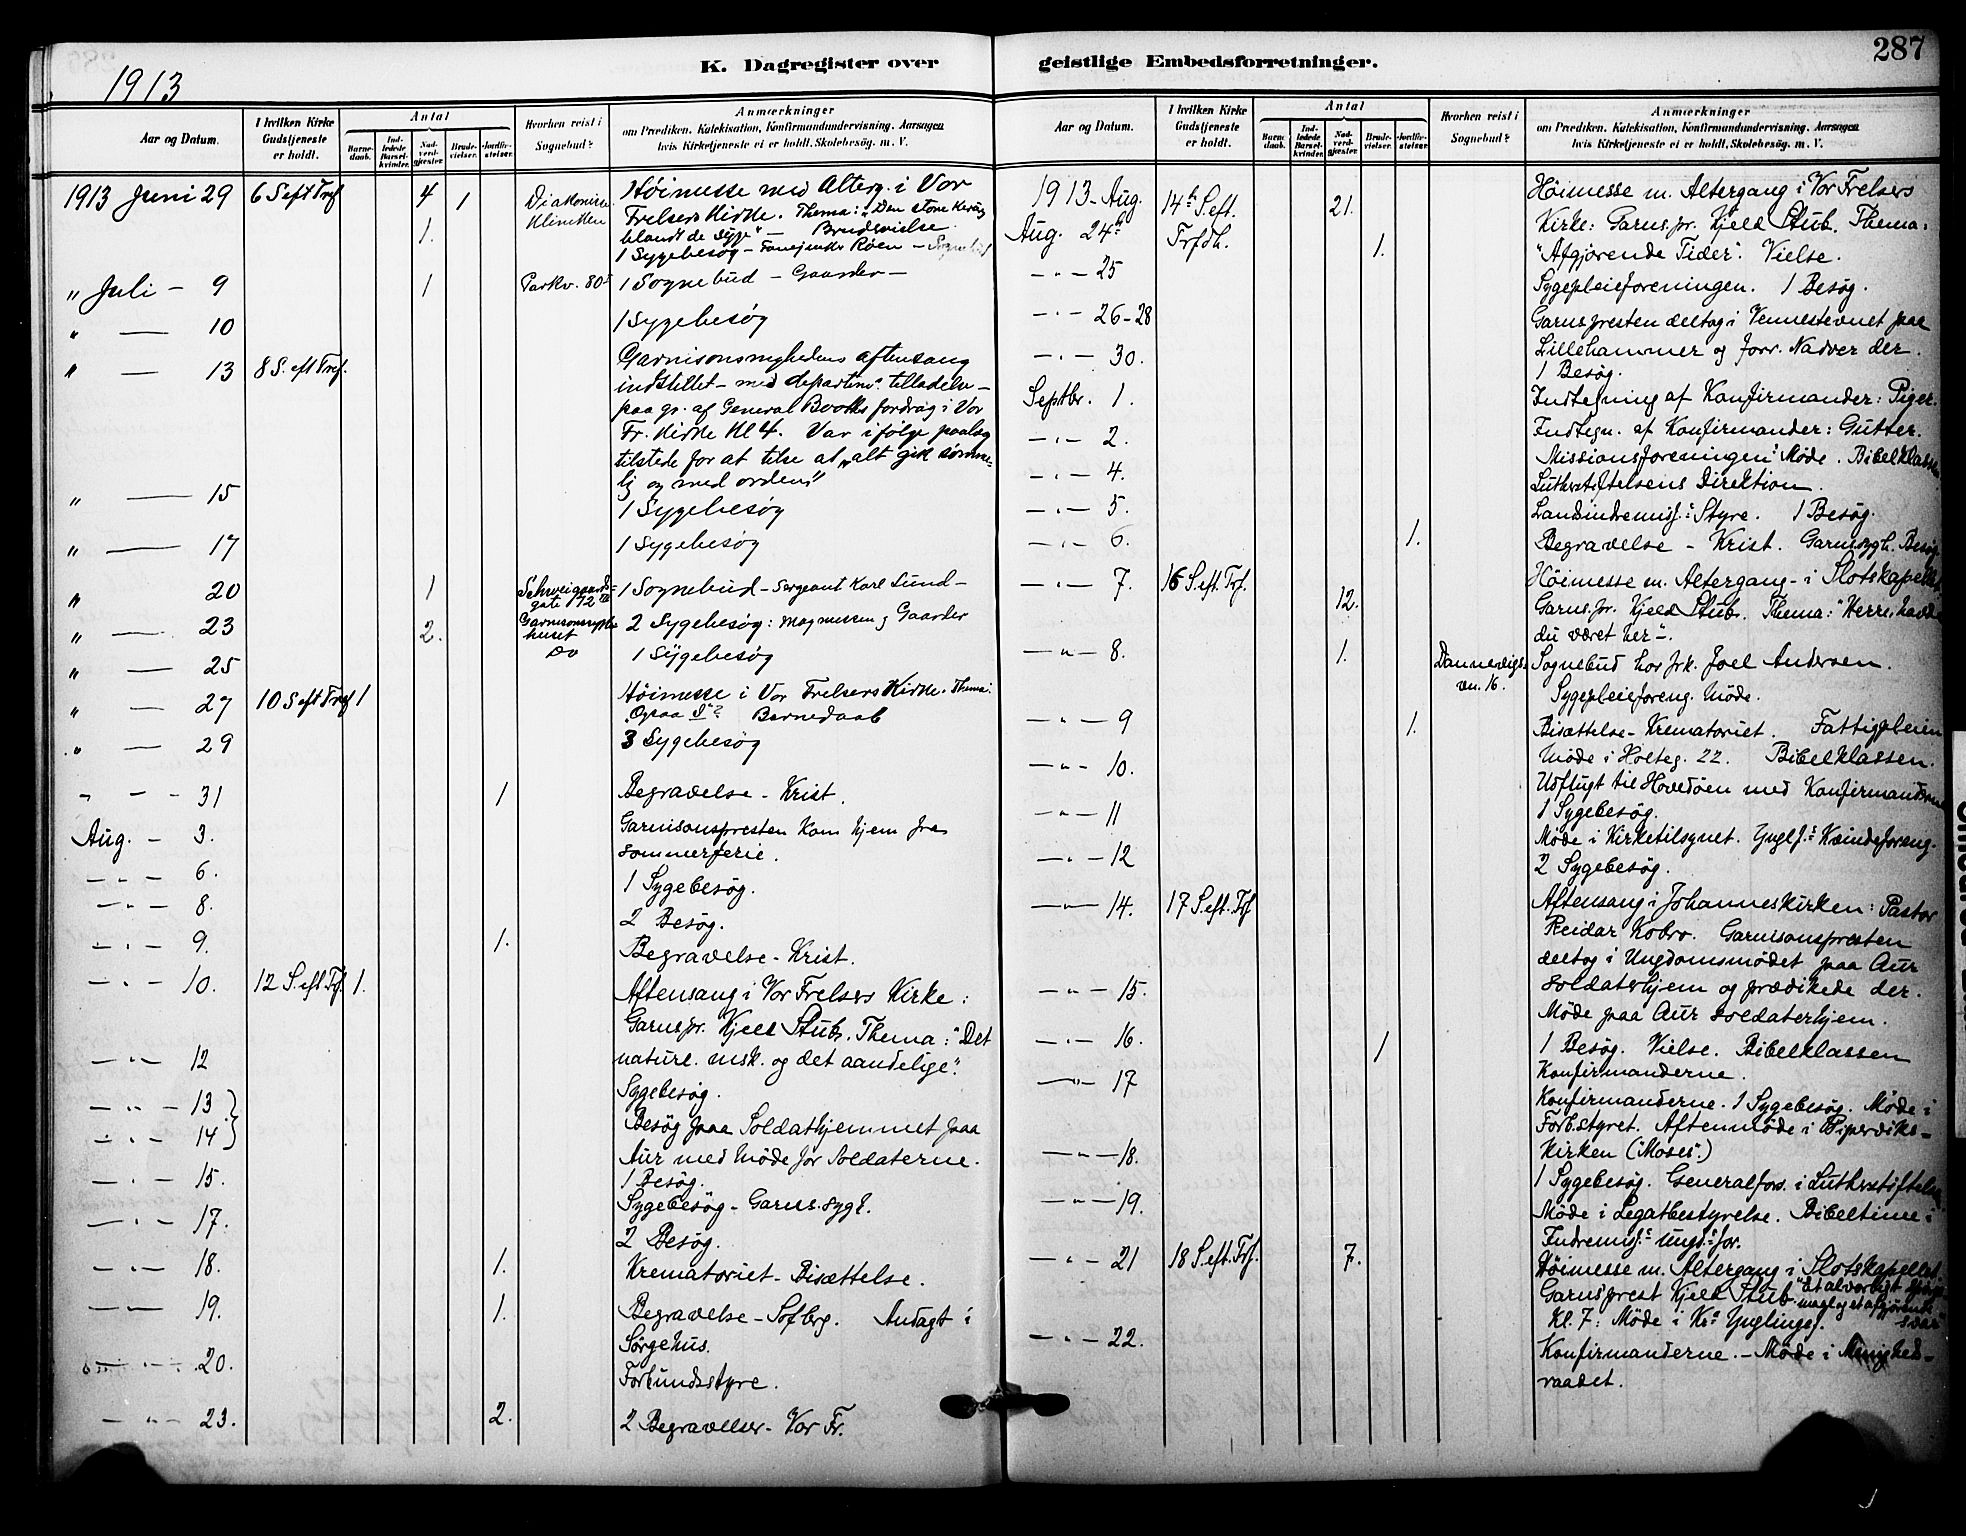 287
1913
K. Dagregister over geistlige Embedsforretninger.
Aar og Datum.
I hvilken Kirke Gudstjeneste er holdt.
Antal
Barne-daab.
Ind-ledede Barsel-kvinder.
Nad-verd-gjæster.
Brude-vielser.
Jordfæ-stelser.
Hvorhen reist i Sognebud?
Anmærkninger
om Prædiken, Katekisation, Konfirmandundervisning, Aarsagen
hvis Kirketjeneste ei er holdt, Skolebesøg. m. V.
1913 Juni 29 6 S eft Tref 4 1 Diakonisse Høimesse med Alterg. i Vor
Klinikken Frelsers Kirke. Thema: "Den store Kirurg
1. blandt de syge" — Brudevielse
1 Sygebesøg - Fanejunker Røen - Sognebud
" Juli - 9 1 Parkv. 80 1 Sognebud - Gaarder -
" — 10 1 Sygebesøg
" — 13 8 S. eft Tref. Garnisonsmenighedens aftensang
indstillet - med departem. tilladelse -
paa gr. af General Booths fordrag i Vor
Fr. Kirke Kl 4. Var i følge paalæg
tilstede for at tilse at "alt gik sømme-
lig og med orden"
" — 15 1 Sygebesøg
" — 17 1 Sygebesøg
" 20 1 Schweigaards-gate 72 1 Sognebud - Sergeant Karl Lund -
" — 23 2. Garnisonssyge-huset 2 Sygebesøg: Magnussen og Gaarder
" — 25 Do 1 Sygebesøg
" — 27 10 S eft Tref 1 Høimesse i Vor Frelsers Kirke. Thema:
Barnedaab
" — 29 3 Sygebesøg
" - - 31 1 Begravelse - Krist.
Aug. - 3. Garnisonspresten kom hjem fra
sommerferie.
— " — 6. 1 Sygebesøg.
— " — 8. 2 Besøg.
— " — 9. 1. Begravelse - Krist.
— " — 10. 12 S. eft Trf. 1. Aftensang i Vor Frelsers Kirke:
Garns.pr. Kjeld Stub. Thema: "Det
nature. msk. og det aandelige".
— " — 12 Sygebesøg.
— " — 13 } Besøg paa Soldathjemmet paa
— " — 14 } Aur med Møde for Soldaterne.
— " — 15. 1 Besøg.
Sygebesøg - Garns. sygh.
— " — 17. 2 Besøg.
— " — 18. 1. Krematoriet - Bisættelse.
— " — 19. 1. Begravelse - Sofbrg. Andagt i
Sørgehus.
— " — 20. Forbundsstyre.
— " — 23. 2. 2 Begravelser - Vor Fr.
Aar og Datum.
I hvilken Kirke Gudstjeneste er holdt.
Antal
Barne-daab.
Ind-ledede Barsel-kvinder.
Nad-verd-gjæster.
Brude-vielser.
Jordfæ-stelser.
Hvorhen reist i Sognebud?
Anmærkninger
om Prædiken, Katekisation, Konfirmandundervisning, Aarsagen
hvis Kirketjeneste ei er holdt, Skolebesøg. m. V.
1913 - Aug. 14de S. eft. 21. Høimesse m. Altergang i Vor Frelsers
Aug. 24de Trfdh. Kirke: Garns.pr. Kjeld Stub. Thema:
1. "Afgjørende Tider". Vielse.
— " — 25 Sygepleieforeningen. 1 Besøg.
— " — 26-28 Garns presten deltog i Vennestevnet paa
Lillehammer og forr. Nadver der.
— " — 30. 1 Besøg.
Septbr. 1. Indtegning af Konfirmander: Piger.
— " — 2. Indtegn. af Konfirmander: Gutter.
Missionsforeningen: Møde. Bibelklassen
— " — 4. Lutherstiftelsens Direktion.
— " — 5. Landsindremisj. Styre. 1 Besøg.
— " — 6. 1. Begravelse - Krist. Garns sygh. Besøg.
— " — 7. 16 S. eft. Trf. Høimesse m. Altergang - i Slotskapellet
12. Garns.pr. Kjeld Stub. Thema: "Herre, havde
du været her".
— " — 8. 1. Dannevigs- Sognebud hos frk. Joel Andersen.
vn. 16. Sygepleieforeng. Møde.
— " — 9 1. Bisættelse - Krematoriet. Fattigpleien
Møde i Holteg. 22. Bibelklassen.
— " — 10. Udflugt til Hovedøen med Konfirmanderne
1 Sygebesøg.
— " — 11 Møde i Kirketilsynet. Ynglf. Kvindeforeng.
— " — 12 2 Sygebesøg.
— " — 14. 17 S. eft. Trf Aftensang i Johanneskirken: Pastor
Reidar Kobro. Garnisonspresten
deltog i Ungdomsmødet paa Aur
Soldaterhjem og prædikede der.
— " — 15. Møde paa Aur Soldaterhjem.
— " — 16. 1 1 Besøg. Vielse. Bibelklassen
Konfirmanderne.
— " — 17 Konfirmanderne. 1 Sygebesøg. Møde i
Forb.styret. Aftenmøde i Piperviks-
Kirken ("Moses".)
— " — 18. 1 Sygebesøg. Generalfors. i Lutherstiftelsen
— " — 19. Møde i Legatbestyrelse. Bibeltime i
Indremisj. Ungd. for.
— " — 21 18 S. eft. Trf. 7. Høimesse m. Altergang i Slotskapellet
Garnsprest Kjeld Stub. "Et alvorligt spørgs-
maal og et afgjørende svar"
Kl. 7: Møde i Kr. Ynglingef.
— " — 22. Konfirmanderne. - Møde i Menigheds-
raadet.